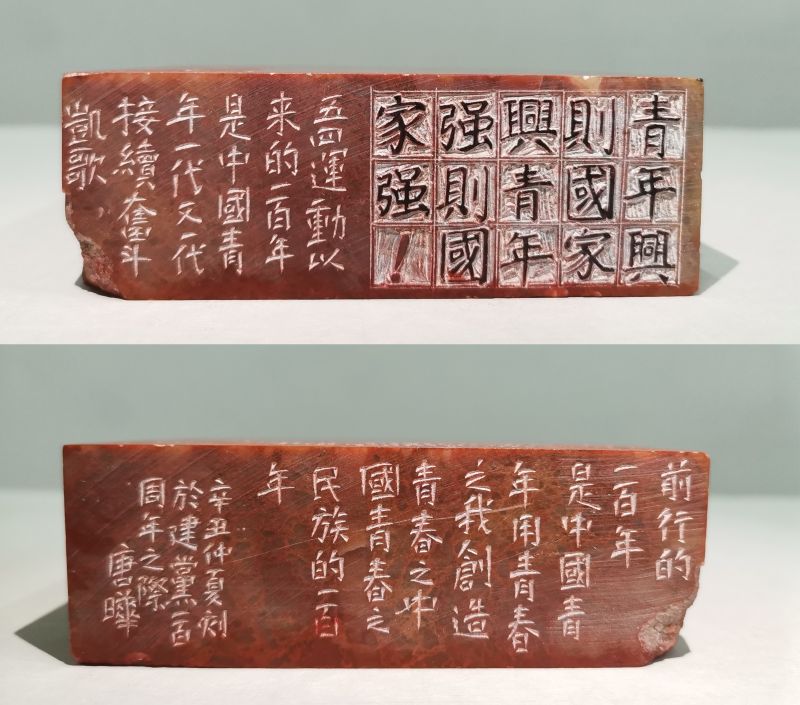 青年興
則國家
興青年
强則國
家强！
五四運動以
来的一百年
是中國青
年一代又一代
接續奮斗
凱歌，
前行的
一百年
是中國青
年用青春
之我創造
青春之中
國青春之
民族的一百
年
辛丑仲夏刻
於建黨一百
周年之際
唐曄